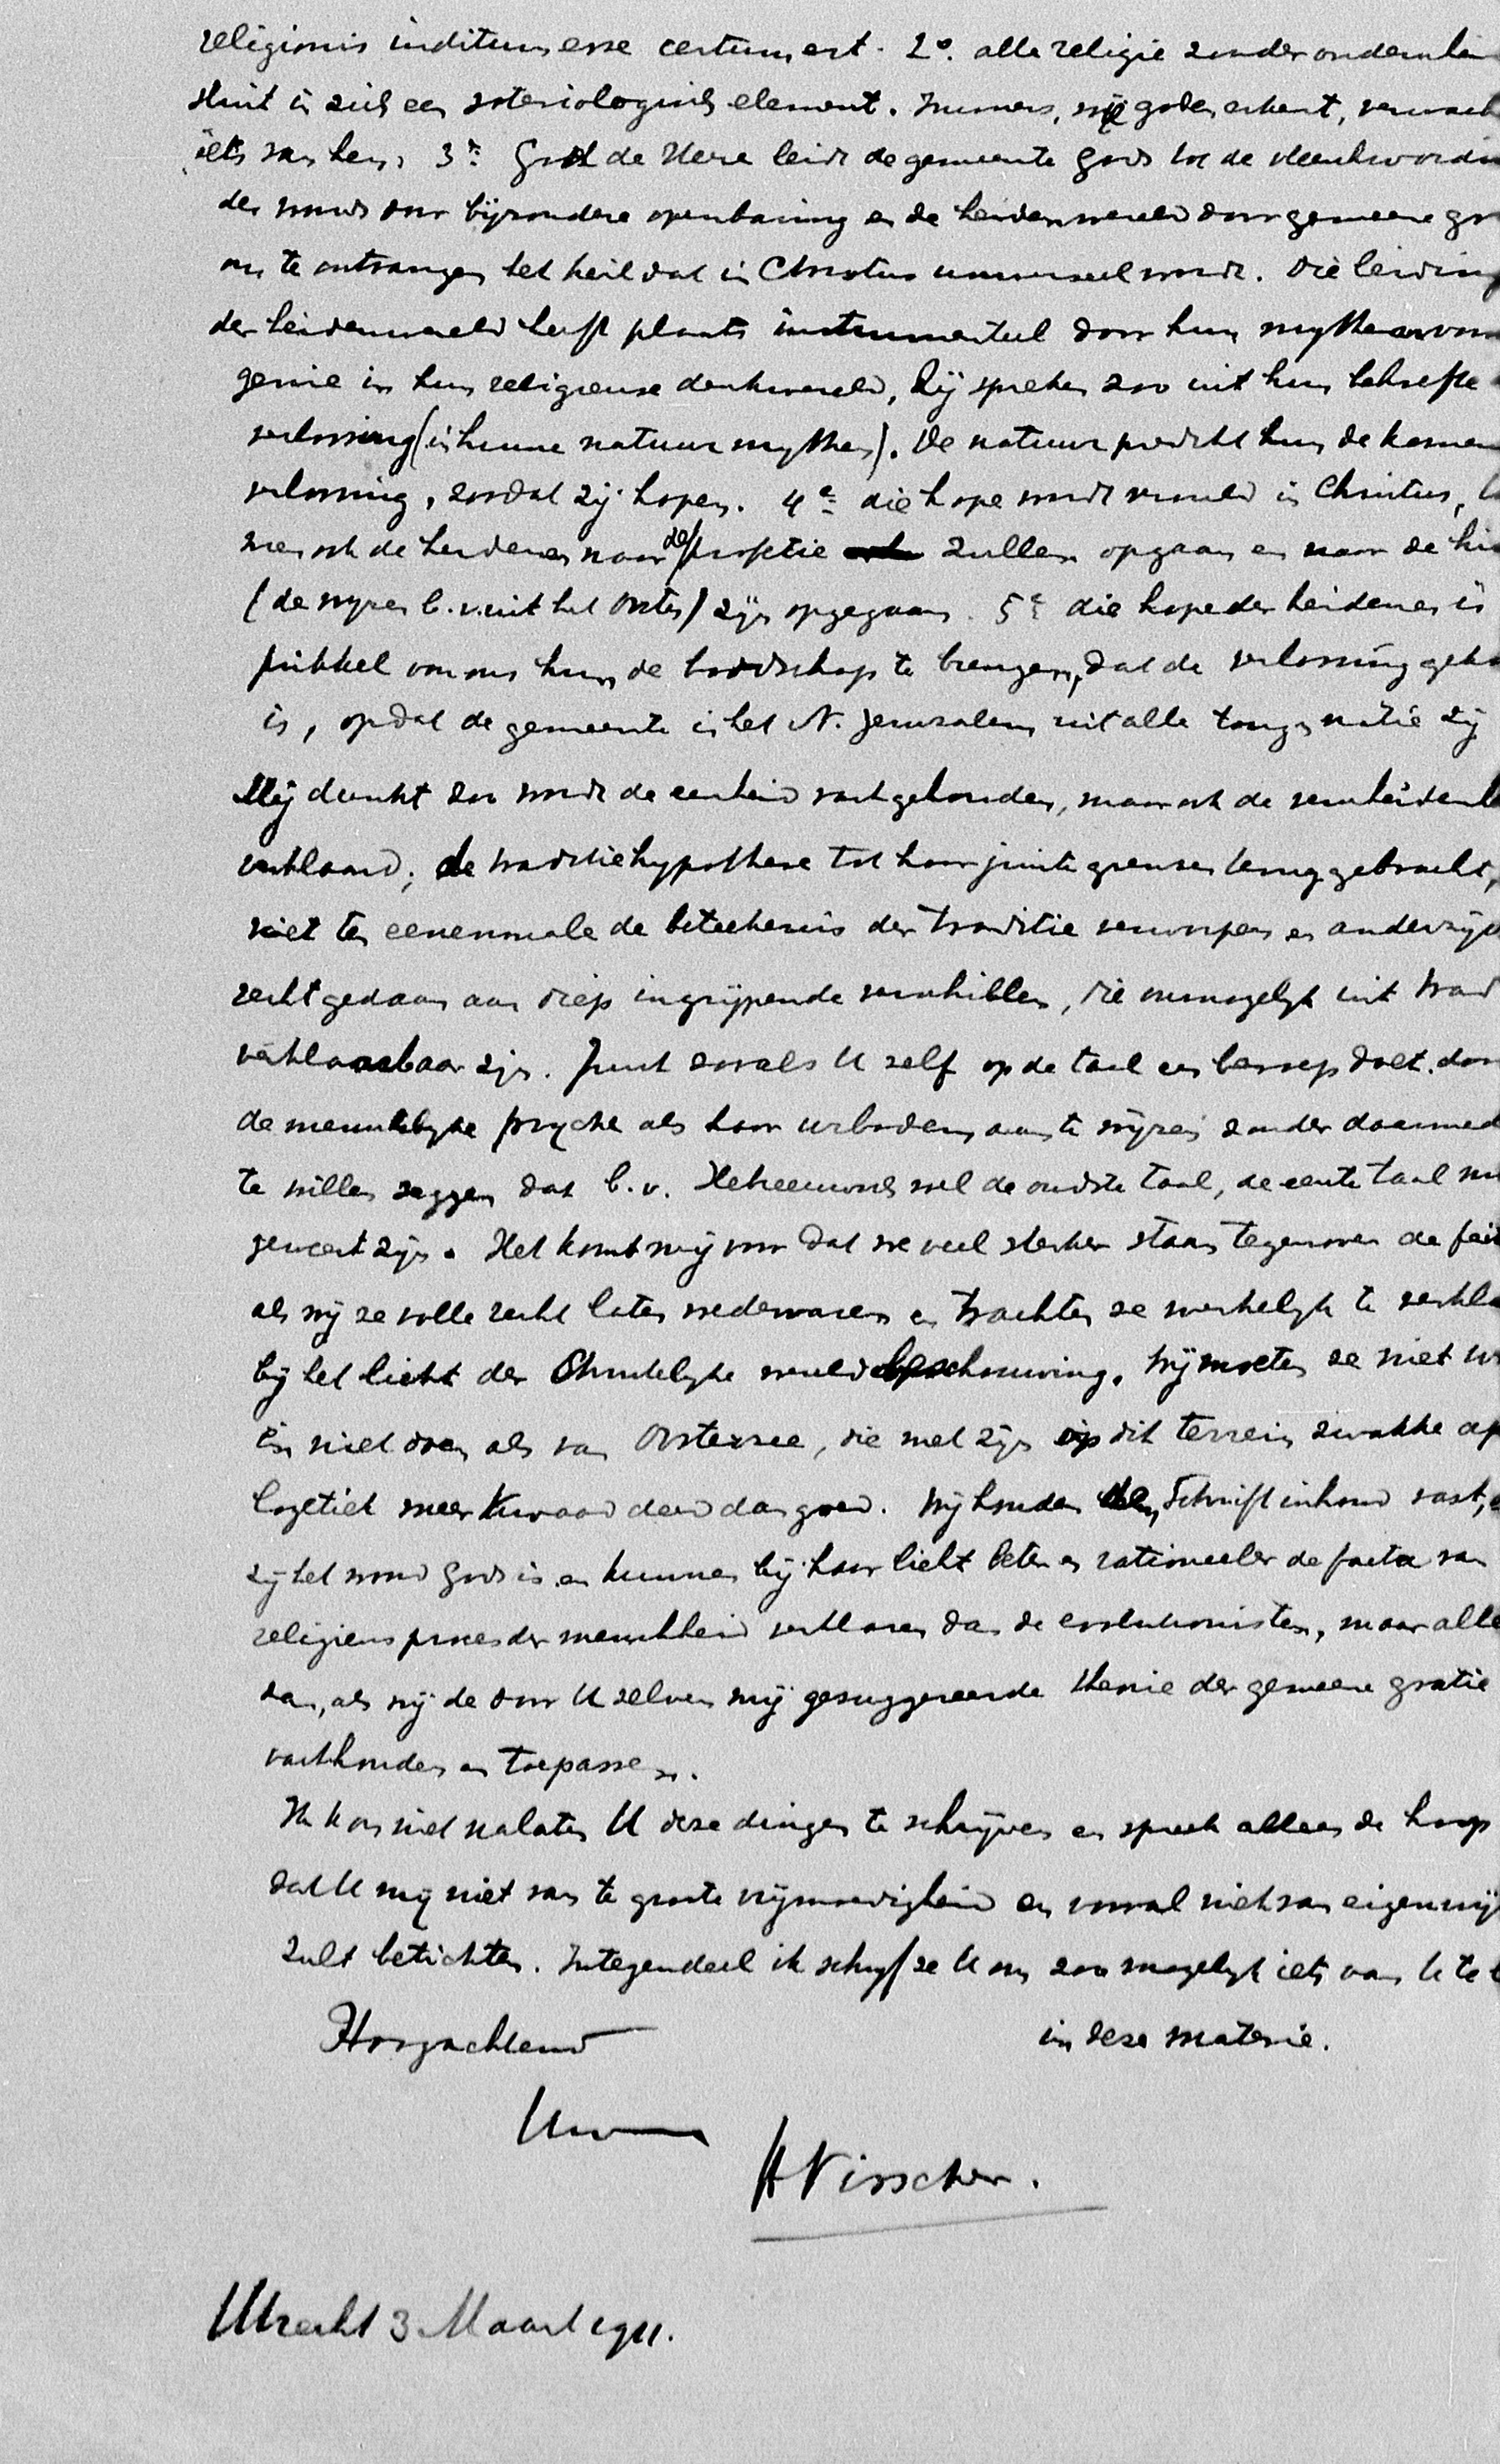 religionis inditum esse certum est. 2o. alle religie zonder onderschei
sluit in zich een soteriologisch element. Immers, wie goden erkent, verwach
iets van hen. 3e. God de Heere leidt de gemeente Gods tot de vleeschwordin
des woords door bijzondere openbaring en de heidenwereld door gemeene gr
om te ontvangen het heil dat in Christus universeel wordt. Die leiding
der heidenwereld heeft plaats instrumenteel door hun mythen vorm
genie in hun religieuse denkwereld, Zij spreken zoo uit hun behoefte
verlossing (in hunne natuur mythen). De natuur predikt hun de komen
verlossing, zoodat zij hopen. 4e die hope wordt vervuld in Christus,
wien ook de heidenen naar de profetie zullen opgaan en naar de his
(de wyzen b.v. uit het Oosten) zijn opgegaan. 5e die hope der heidenen is
prikkel voor ons hun de boodschap te brengen, dat de verlossing geko
is, opdat de gemeente in het N. Jeruzalem uit alle tong en natie zij
Mij dunkt zoo wordt de eenheid vastgehouden, maar ook de verscheidenh
verklaard; de traditiehypothese tot haar juiste grenzen teruggebracht,
niet ten eenenmale de beteekenis der traditie verworpen en anderzijd
recht gedaan aan diep ingrijpende verschillen, die onmogelyk uit trad
verklaarbaar zijn. Juist zooals U zelf op de taal een beroep doet door
de menschelyke psyche als haar urboden aan te wijzen zonder daarmed
te willen zeggen dat b.v. Hebreeuwsch wel de oudste taal, de eerste taal
geweest zijn. Het komt mij voor dat we veel sterker staan tegenover de feit
als wij ze volle recht laten wedervaren en trachten ze werkelyk te verkla
bij het licht der Christelyke wereldbeschouwing. Wij moeten ze niet
En niet doen als van Oosterzee, die met zijn op dit terrein zwakke ap
logetiek meer kwaad deed dan goed. Wij houden den Schriftinhoud vast,
zij het woord Gods is en kunnen bij haar licht beter en rationeeler de facta van
religieus proces der menschheid verklaren dan de evolutionisten, maar alle
dan, als wij de door U zelven mij gesuggereerde theorie der gemeene gratie
vasthouden en toepassen.
Ik kon niet nalaten U deze dingen te schrijven en spreek alleen de hoop
dat U mij niet van te groote vrijmoedigheid en vooral niet van eigenwij
zult betichten. Integendeel ik schryf ze U om zoo mogelyk iets van U te
in deze materie.
Hoogachtend
Uw
H Visscher.
Utrecht 3 Maart 1911.